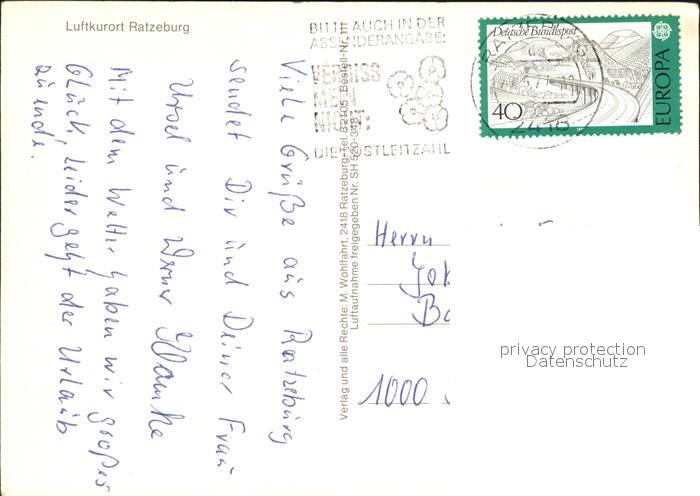 Luftkurort Ratzeburg
BITTE AUCH IN DER
ABSENDERANGABE:
VERGISS
MEIN
NICHT
DIE POSTLEITZAHL
Deutsche Bundespost
40
EUROPA
2418
Viele Grüße aus Ratzeburg
sendet Dir und Deiner Frau
Ursel und Werner
Mit dem Wetter haben wir großes
Glück, leider geht der Urlaub
zu ende.
Verlag und alle Rechte: M. Wohlfahrt, 2418 Ratzeburg-Tel. 82105-Bestell-Nr. 111
Luftaufnahme freigegeben Nr. SH 520-348
Herrn
1000
privacy protection
Datenschutz